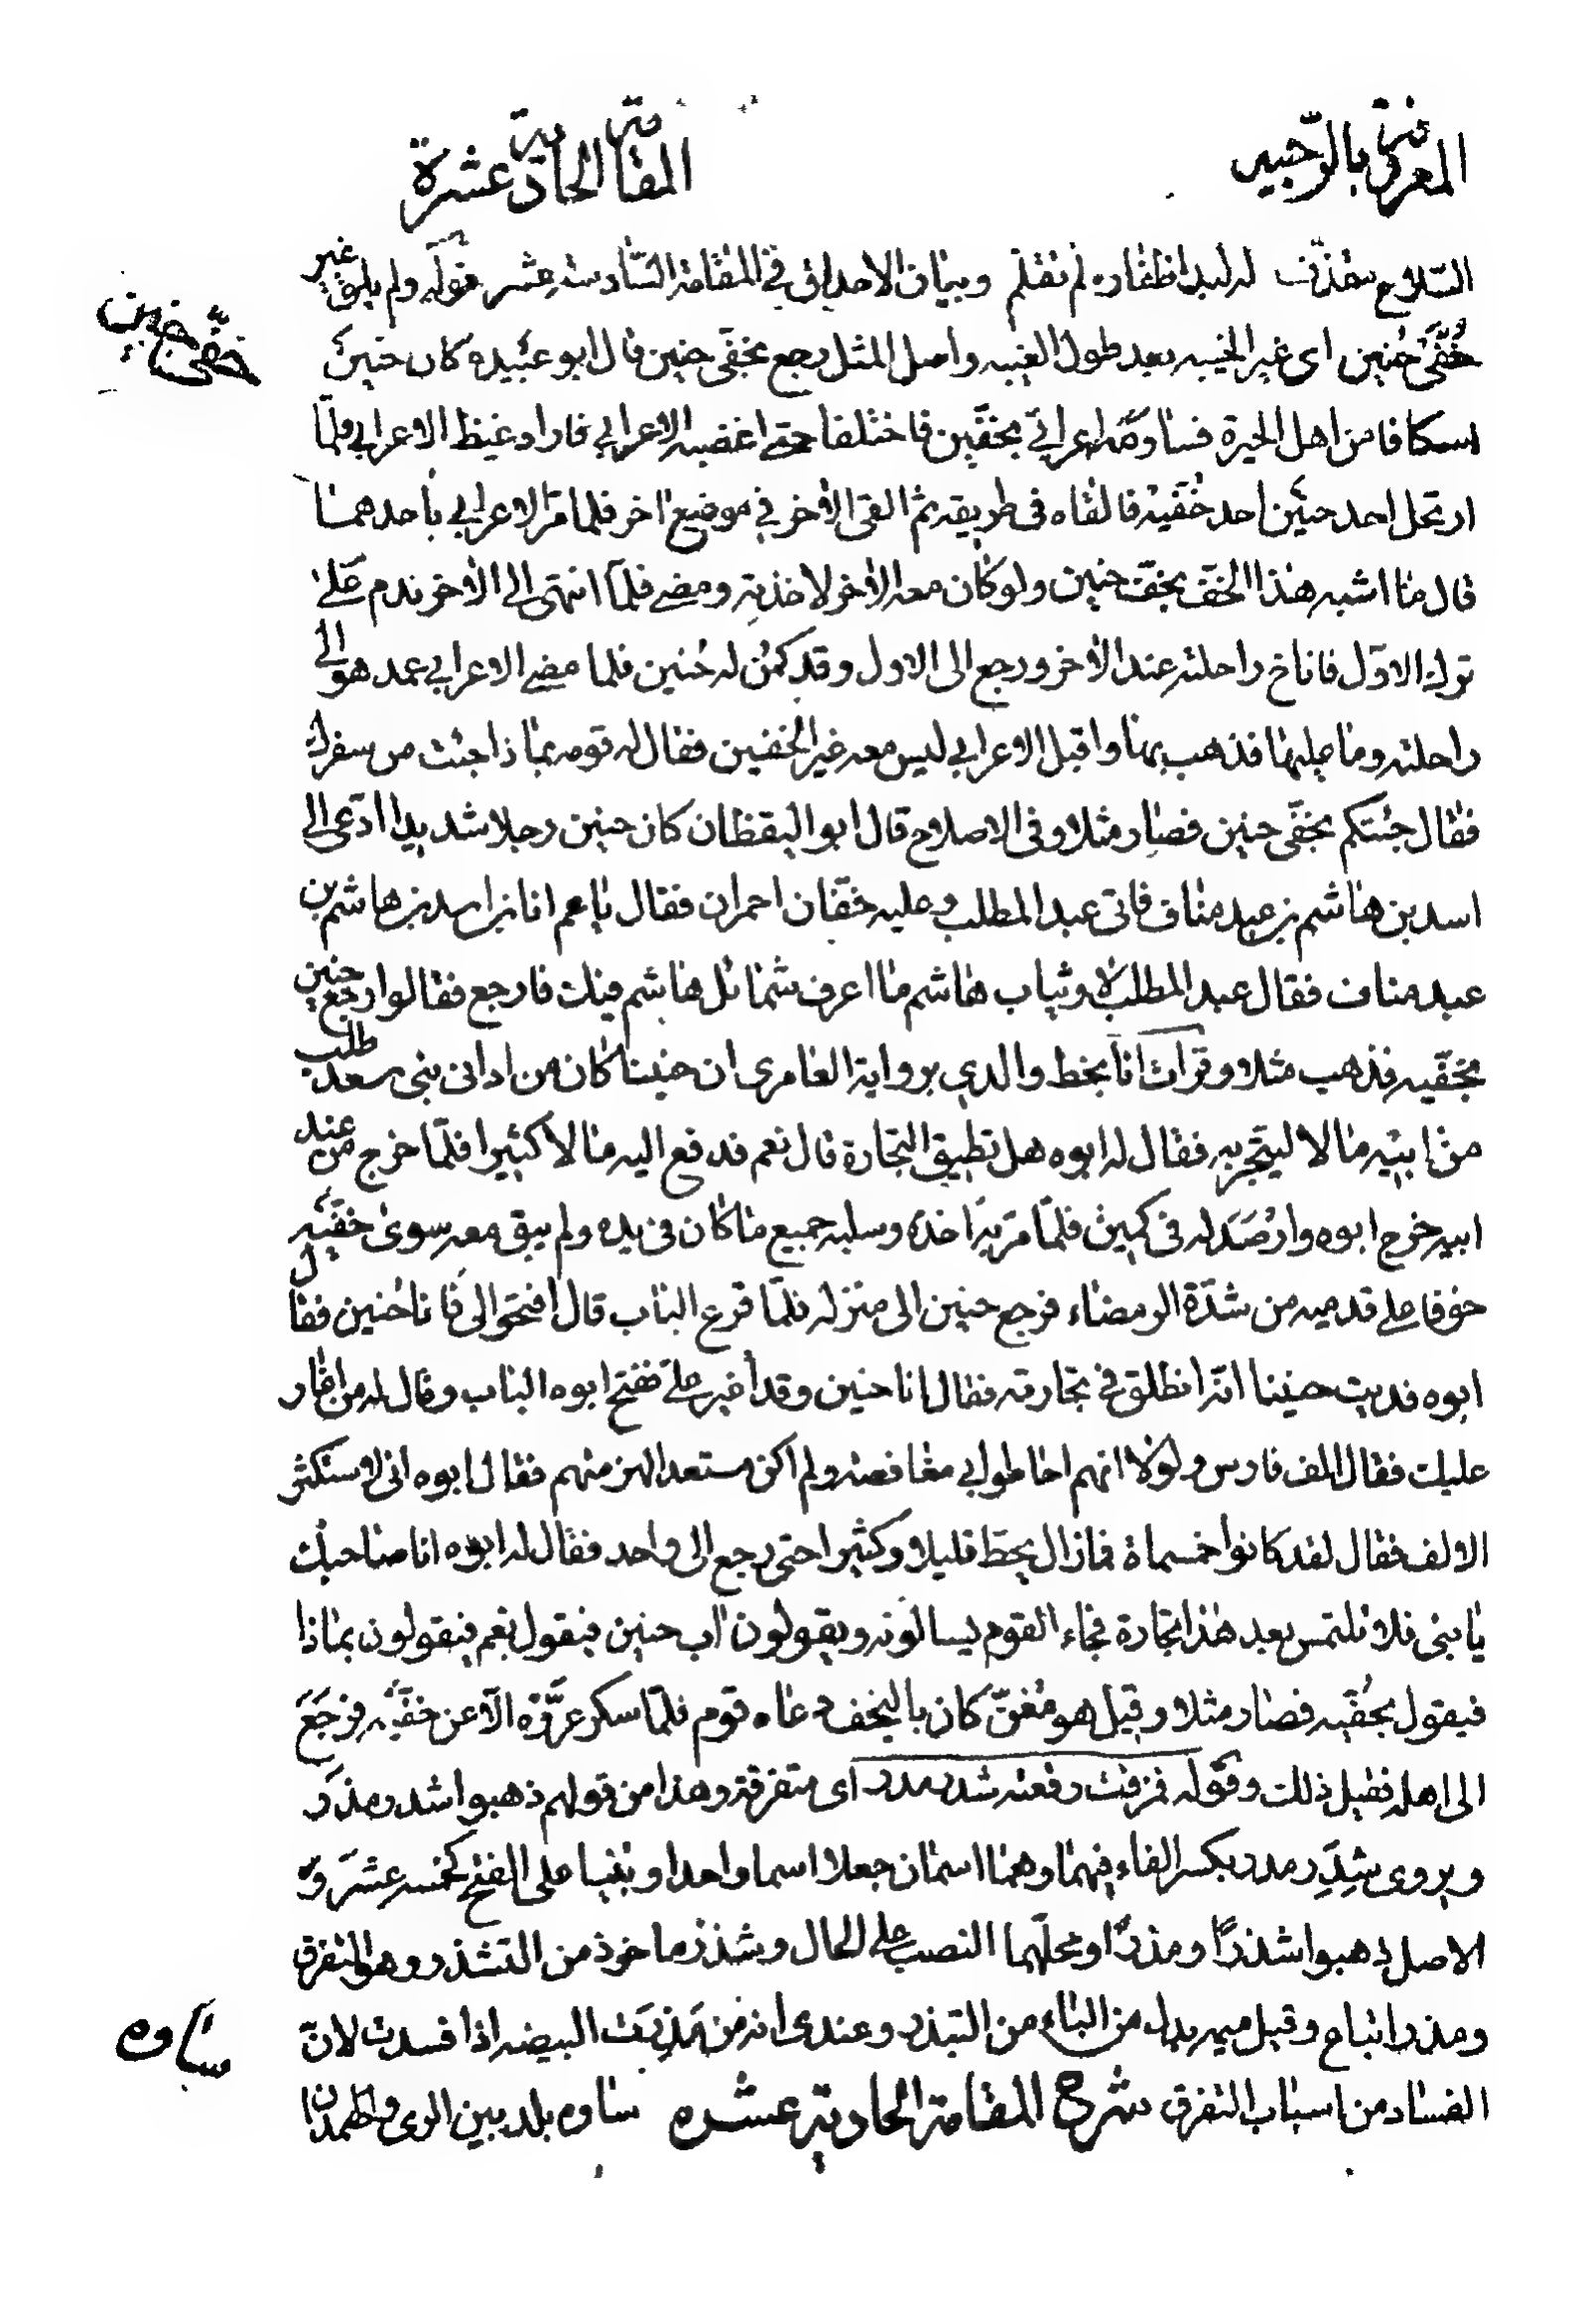 المعروفة بالرحبية
المقامة الحادية عشرة
السلاح مقذف له لبد اظفاره لم تقلم وبيان الاحداق في المقامة السادسة عشر قوله ولم يلق غير
خفى حنين
خُفَّى حُنين اى غير الخيبه بعد طول الغيبه واصل المثل رجع بخفى حنين قال ابو عبيدة كان حنين
اسكافا من اهل الحيرة فساومه اعرابى بخفّين فاختلفا حتى اغضبه الاعرابي فاراد غيظ الاعرابي فلمّا
ارتحل اخذ حنين احد خُفّيه فالقاه فى طريقه ثم القى الاخر في موضع اخر فلما مرّ الاعرابي باحدهما
قال ما اشبه هذا الخفّ بخفّ حنين ولو كان معه الاخر لاخذته ومضى فلمّا انتهى الى الاخر ندم على
ترك الاوّل فاناخ راحلته عند الاخر ورجع الى الاول وقد كمُن له حُنين فلما مضى الاعرابي عمد هو الى
راحلته وما عليها فذهب بها واقبل الاعرابي ليس معه غير الخفين فقال له قومه بماذا جئت من سفرك
فقال جئتكم بخفّى حنين فصار مثلا وفى الاصلاح قال ابو اليقظان كان حنين رجلا شديدا ادّعى الى
اسد بن هاشم بن عبد مناف فاتى عبد المطلب وعليه خفّان احمران فقال يا عم انا بن اسد بن هاشم بن
عبد مناف فقال عبد المطلب لا وثياب هاشم ما اعرف شمائل هاشم فيك فارجع فقالوا رجع حنين
بخفّيه فذهب مثلا وقرات انا بخط والدي برواية العامرى ان حنينا كان من ادانى بنى سعد طلب
من ابيه مالا ليتّجر به فقال له ابوه هل تطيق التجارة قال نعم فدفع اليه مالا كثيرا فلمّا خرج من عند
ابيه خرج ابوه وارْصَدَ له فى كمين فلمّا مرّ به اخذه وسلبه جميع ما كان فى يده ولم يبق معه سوى خفّيه
خوفا على قدميه من شدّة الرمضاء فرجع حنين الى منزله فلمّا قرع الباب قال افتحوا لى فانا حُنين فقال
ابوه فديت حنينا انّه انطلق في تجارته فقال انا حنين وقد اُغير علىّ ففتح ابوه الباب وقال له من اغار
عليك فقال الف فارس ولولا انهم احاطوا بي مغافصة ولم اكن مستعدا لهزمتهم فقال ابوه انى لاستكثر
الالف فقال لقد كانوا خمسماة فمازال يحطّ قليلا وكثيرا حتى رجع الى واحد فقال له ابوه انا صاحبك
يا بنى فلا تلتمس بعد هذا تجارة فجاء القوم يسالونه ويقولون اب حنين فيقول نعم فيقولون بماذا
فيقول بخُفّيه فصار مثلا وقيل هو مُغنّ كان بالنجف دعاه قوم فلمّا سكر عرَّوْه الّا عن خفَّيْه فرجَعَ
الى اهله فقيل ذلك وقوله فمزقت رقعته شذر مذر اى متفرقة وهذا من قولهم ذهبوا شذر مذرَ
ويروى شِذَر مذر بكسر الفاء فيهما وهما اسمان جعلا اسما واحدا وبنيا على الفتح كخمسه عشرَ و
الاصل ذهبوا شذرًا ومذرًا ومحلّهما النصب على الحال وشذر ماخوذ من التشذر وهو التفرق
ومذر اتباع وقيل ميمه بدل من الباء من التبذر وعندى انه من مَذِرَت البيضه اذا فسدت لانّ
ساوه
الفساد من اسباب التفرق شرح المقامة الحادية عشره ساوه بلد بين الرى وهمدان